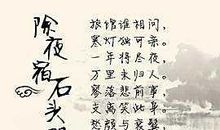 除夜宿石头
旅馆谁相问，
寒灯独可亲。
一年将尽夜，
万里未归人。
寥落悲前事，
支离笑此身。
愁颜与衰鬓，